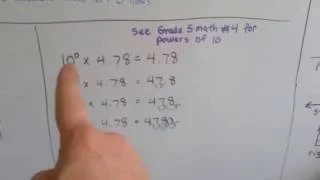 See Grade 5 math #4 for
powers of 10
10⁰ x 4.78 = 4.78
x 4.78 = 47.8
x 4.78 = 478
4.78 = 4780